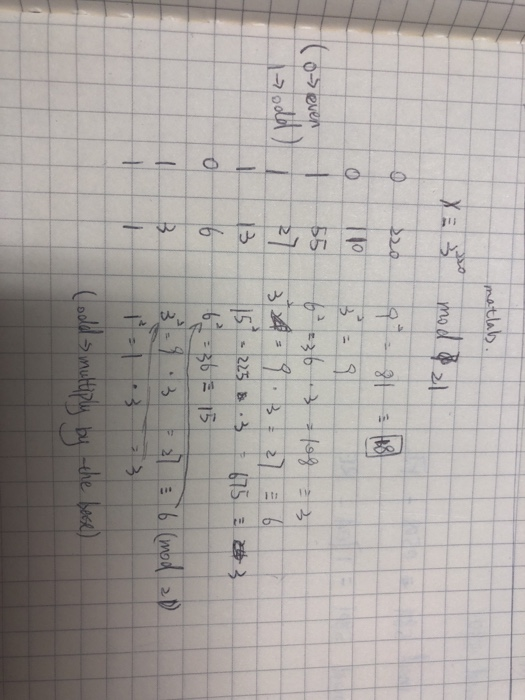 X ≡ 3²²⁰ mod 21
0 220 9² = 81 ≡ 18
0 110 3² = 9
(0→even 1 55 6² = 36 · 3 = 108 ≡ 3
1→odd) 1 27 3² = 9 · 3 = 27 ≡ 6
1 13 15² = 225 · 3 = 675 ≡ 3
0 6 6² = 36 ≡ 15
1 3 3² = 9 · 3 = 27 ≡ 6 (mod 21)
1 1 1² = 1 · 3 = 3
(odd → multiply by the base)